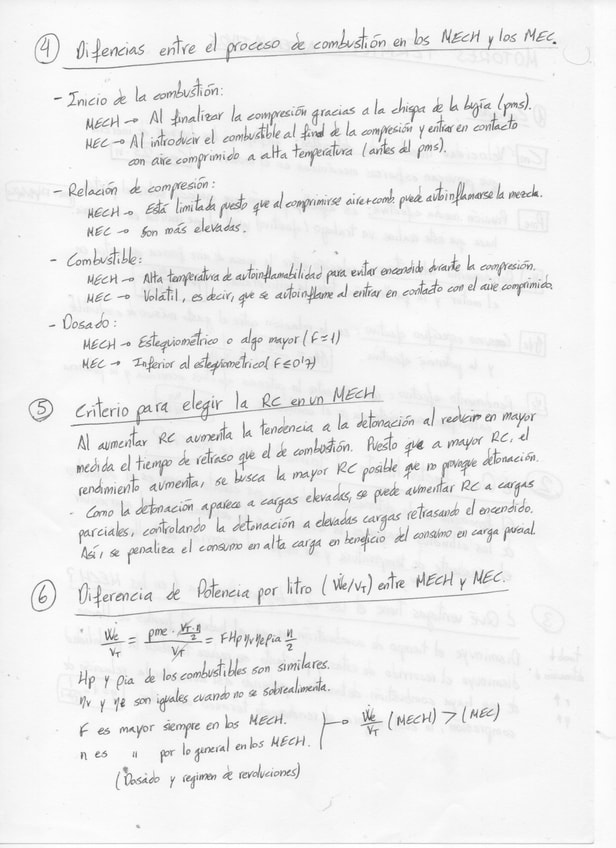 4 Difencias entre el proceso de combustión en los MECH y los MEC.
- Inicio de la combustión:
MECH → Al finalizar la compresión gracias a la chispa de la bujía (pms).
MEC → Al introducir el combustible al final de la compresión y entrar en contacto
con aire comprimido a alta temperatura (antes del pms).
- Relación de compresión:
MECH → Está limitada puesto que al comprimirse aire+comb. puede autoinflamarse la mezcla.
MEC → Son más elevadas.
- Combustible:
MECH → Alta temperatura de autoinflamabilidad para evitar encendido durante la compresión.
MEC → Volátil, es decir, que se autoinflame al entrar en contacto con el aire comprimido.
- Dosado:
MECH → Estequiométrico o algo mayor (F=1)
MEC → Inferior al estequiométrico (F≤0'7)
5 Criterio para elegir la RC en un MECH
Al aumentar RC aumenta la tendencia a la detonación al reducir en mayor
medida el tiempo de retraso que el de combustión. Puesto que a mayor RC, el
rendimiento aumenta, se busca la mayor RC posible que no provoque detonación.
· Como la detonación aparece a cargas elevadas, se puede aumentar RC a cargas
parciales, controlando la detonación a elevadas cargas retrasando el encendido.
Así, se penaliza el consumo en alta carga en beneficio del consumo en carga parcial.
6 Diferencia de Potencia por litro (Ẇe/VT) entre MECH y MEC.
· Ẇe/VT = pme · (VT·n/2)/VT = F Hp ηv ηe ρia n/2
Hp y ρia de los combustibles son similares.
ηv y ηe son iguales cuando no se sobrealimenta.
F es mayor siempre en los MECH.
n es " por lo general en los MECH. → Ẇe/VT (MECH) > (MEC)
(Dosado y regimen de revoluciones)